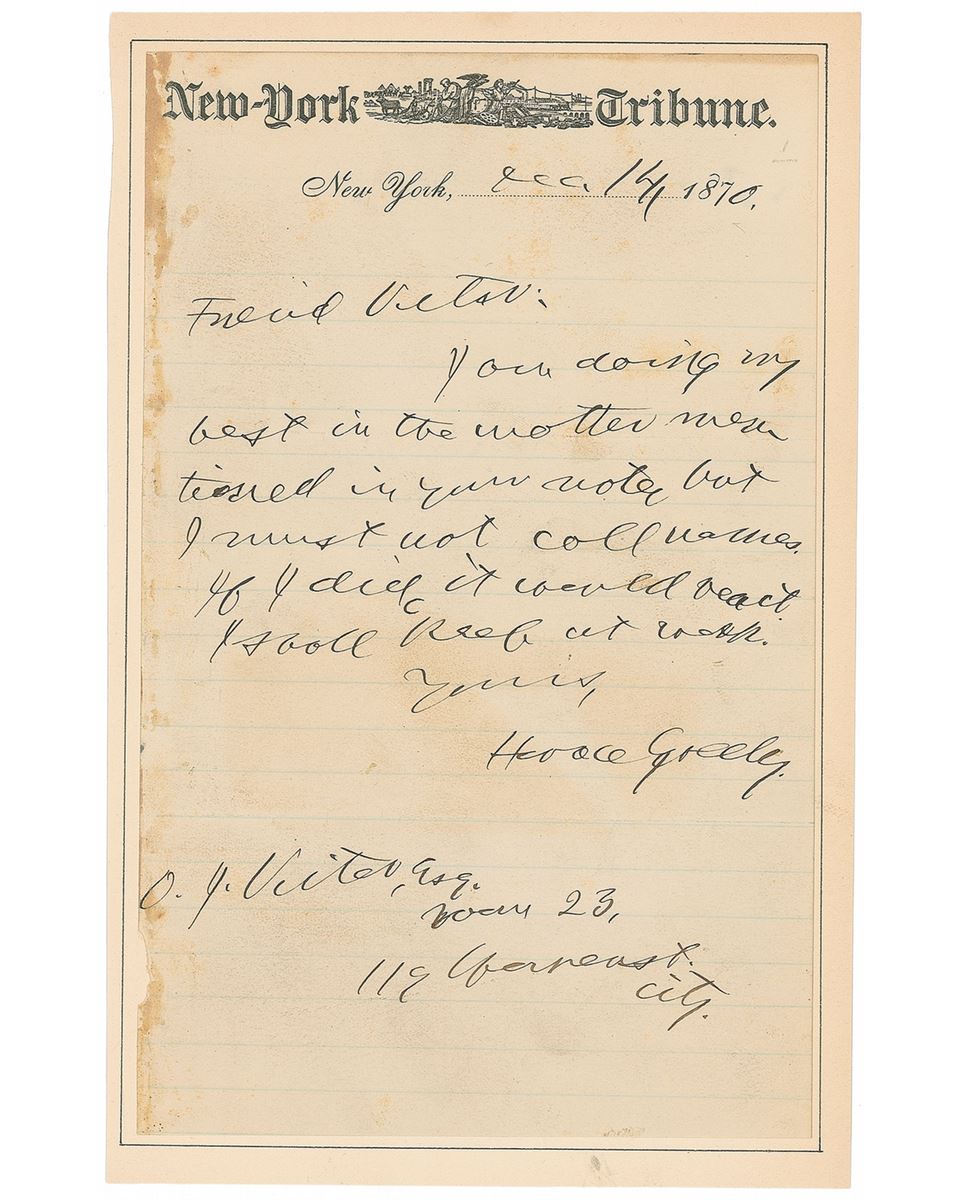 New-York Tribune.
New York, Dec. 14, 1870.
Friend Victor:
I am doing my
best in the matter men
tioned in your note, but
I must not call names.
If I did, it would react.
I shall keep at work.
Yours,
Horace Greeley.
O. J. Victor, Esq.
room 23,
119
City.